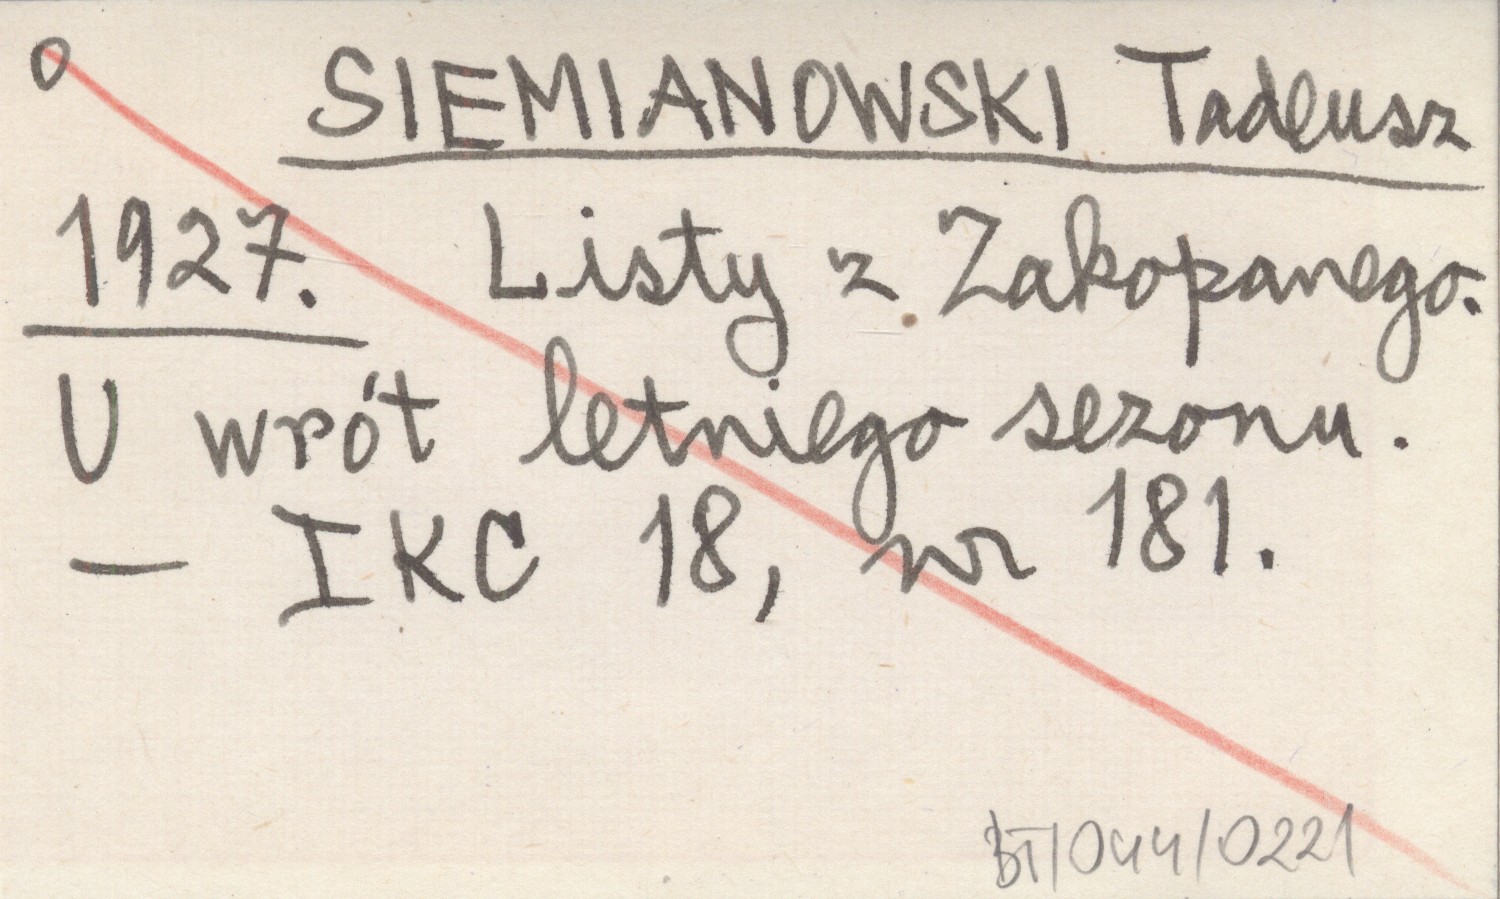 o SIEMIANOWSKI Tadeusz
1927. Listy z Zakopanego.
U wrót letniego sezonu.
— IKC 18, nr 181.
BT/044/0221